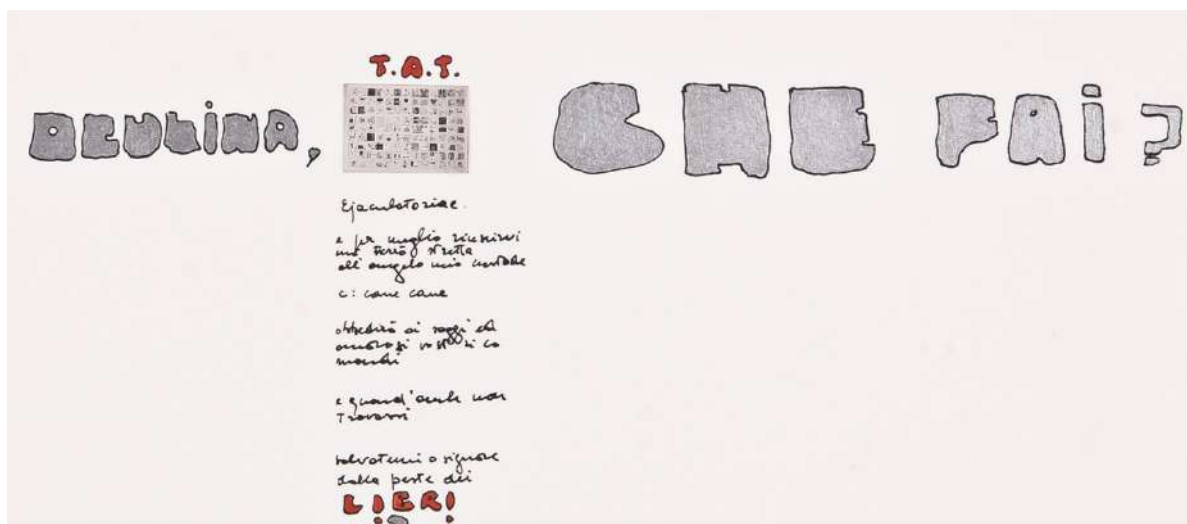 T.A.T.
CHE FAI ?
Ejaculatoriae.
e per meglio riuscirvi
mi terrò stretta
all'angelo mio custode
c: cane cane
obbedirò ai saggi ed
amorosi vostri co
mandi
e quand'anche non
Trovassi
salvatemi o signore
dalla peste dei
LIBRI